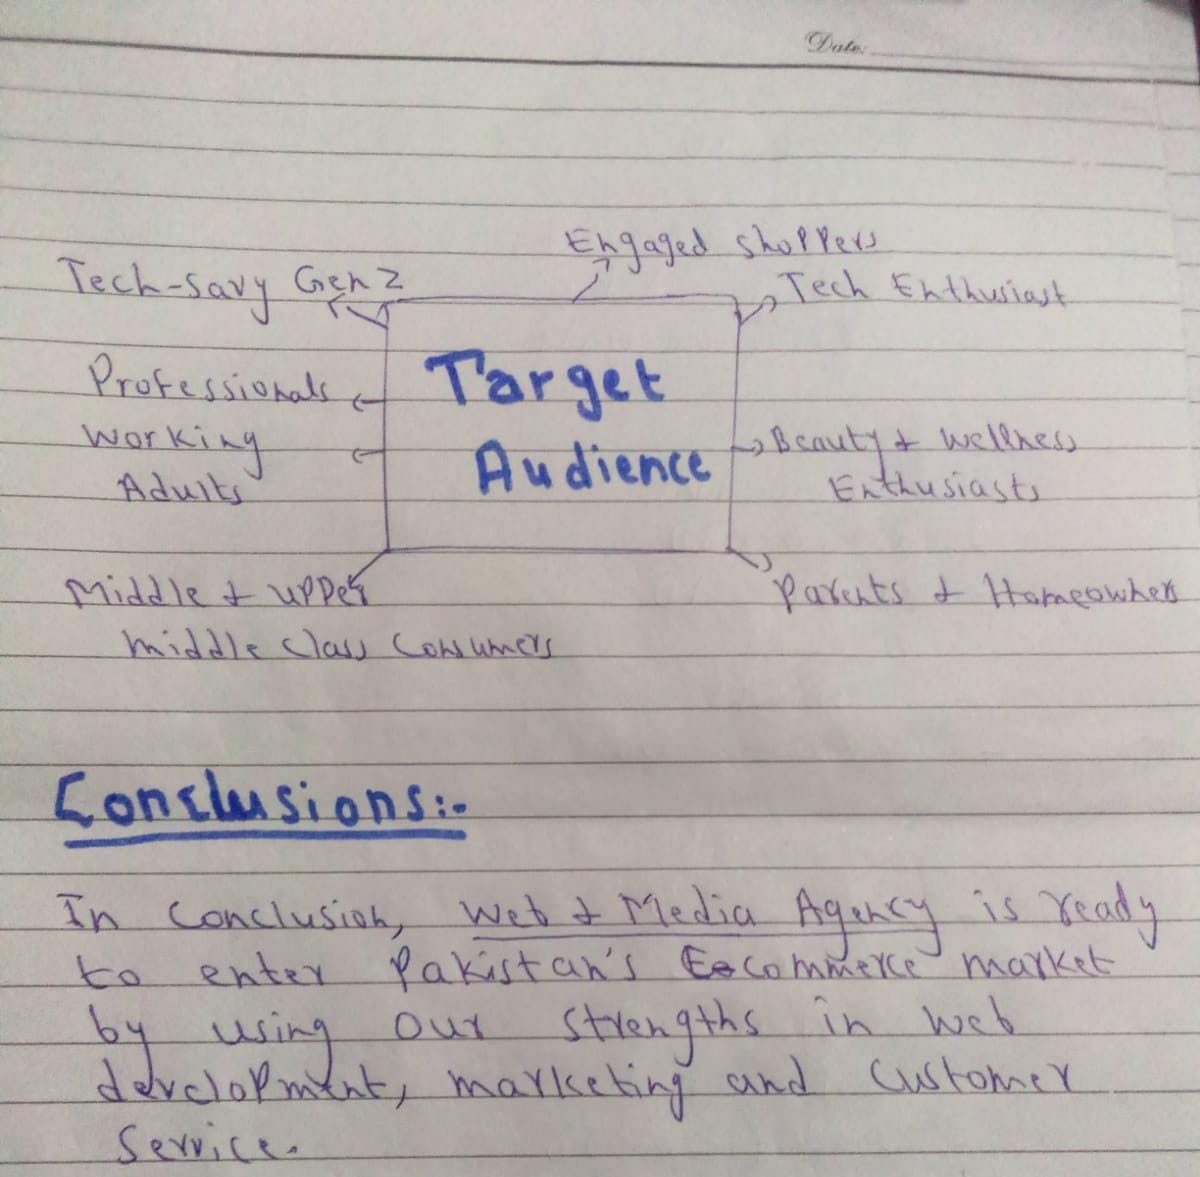 Date:
Engaged shoppers
Tech-savy Gen Z
Tech Enthusiast
Professionals
Target
Working
Adults
Audience
Beauty & Wellness
Enthusiasts
Middle & upper
middle class Consumers
Parents & Homeowners
Conclusions:-
In Conclusion, Web & Media Agency is ready
to enter Pakistan's E-commerce market
by using our strengths in web
development, marketing and customer
Service.